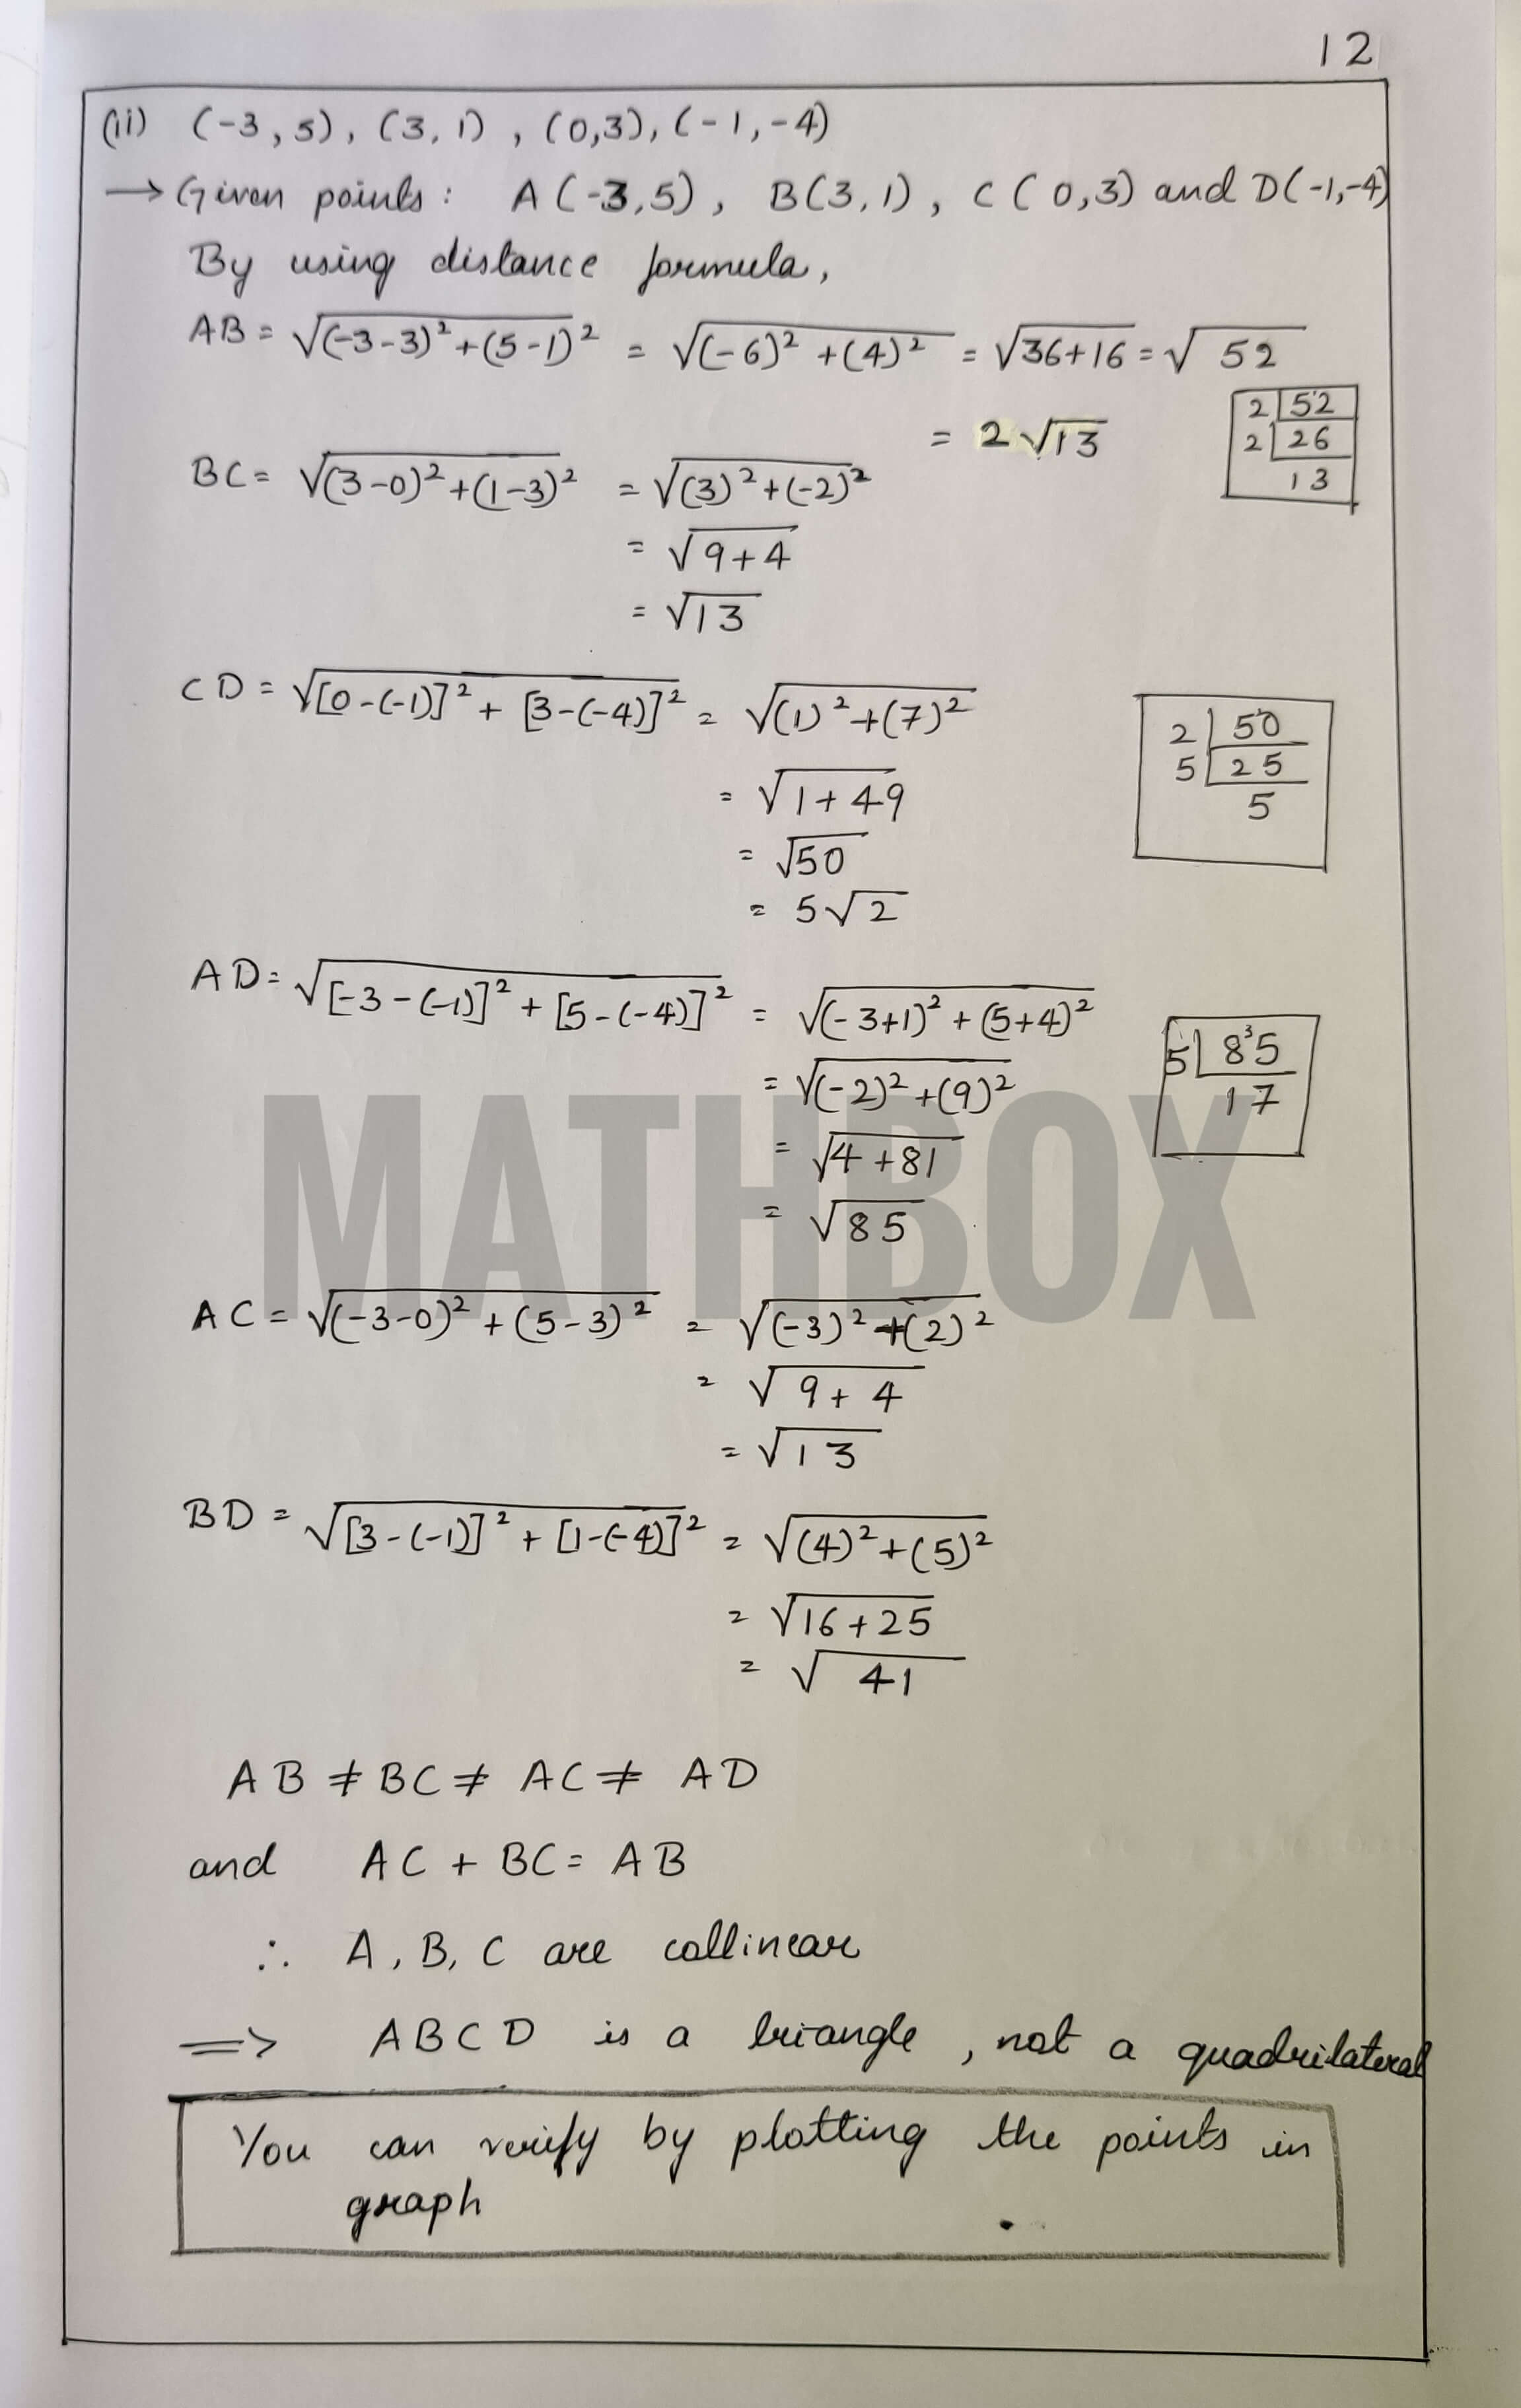 12
(ii) (-3, 5), (3, 1), (0,3), (-1,-4)
→ Given points: A(-3,5), B(3,1), C(0,3) and D(-1,-4)
By using distance formula,
AB = √(-3-3)²+(5-1)² = √(-6)²+(4)² = √36+16 = √52
= 2√13
2 52
2 26
13
BC = √(3-0)²+(1-3)² = √(3)²+(-2)²
= √9+4
= √13
CD = √[0-(-1)]²+[3-(-4)]² = √(1)²+(7)²
= √1+49
= √50
= 5√2
2 50
5 25
5
AD = √[-3-(-1)]²+[5-(-4)]² = √(-3+1)²+(5+4)²
= √(-2)²+(9)²
= √4+81
= √85
5 8³5
17
MATHBOX
AC = √(-3-0)²+(5-3)² = √(-3)²+(2)²
= √9+4
= √13
BD = √[3-(-1)]²+[1-(-4)]² = √(4)²+(5)²
= √16+25
= √41
AB ≠ BC ≠ AC ≠ AD
and AC + BC = AB
∴ A, B, C are collinear
⇒ ABCD is a triangle, not a quadrilateral
You can verify by plotting the points in
graph